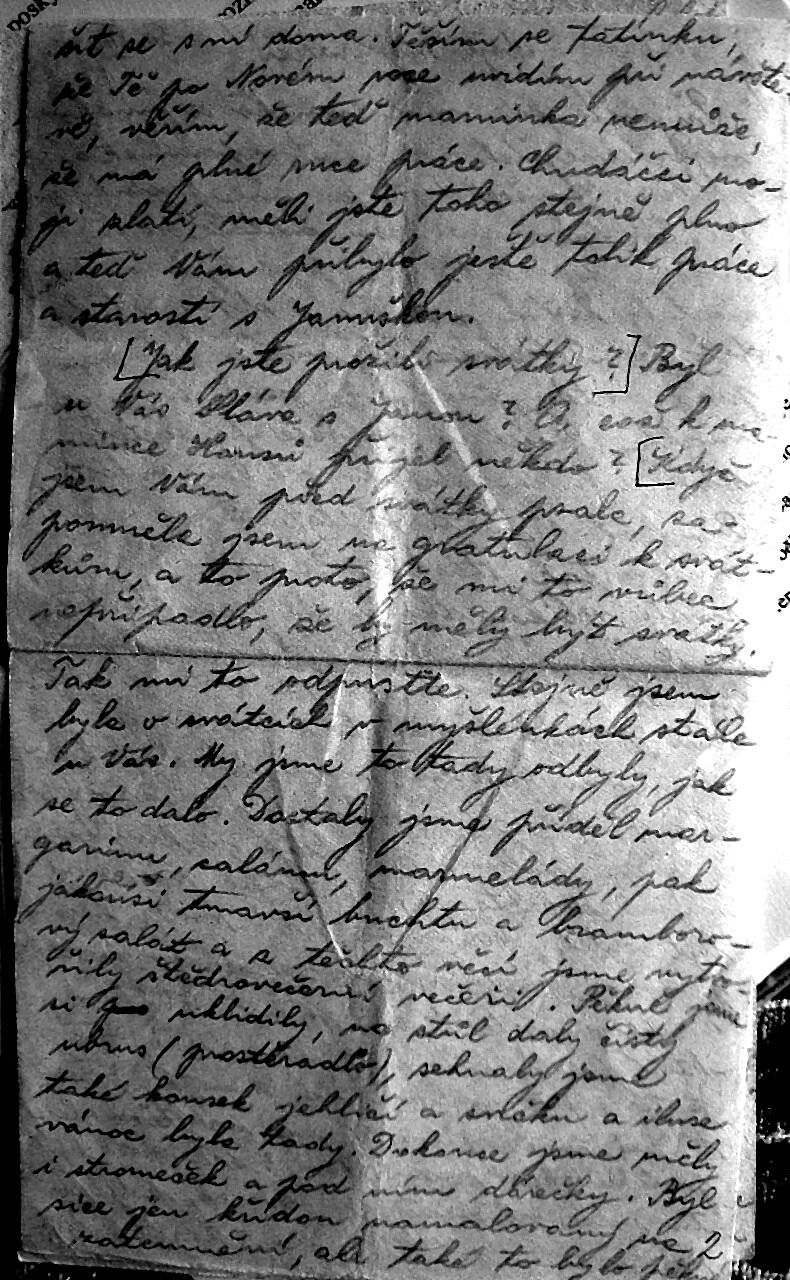 šit se s ní doma. Těším se tatínku,
že Tě po Novém roce uvidím při návště-
vě, věřím, že teď maminka nemůže,
že má plné ruce práce. Chudáčci mo-
ji zlatí, měli jste toho stejně plno
a teď Vám přibylo ještě tolik práce
a starostí s Januškou.
[Jak jste prožili svátky?] Byl
u Vás Sláva s Janou? A což k ma-
mince Hansi přijel někdo? [Když
jsem Vám před svátky psala, za-
pomněla jsem na gratulaci k svát-
kům, a to proto, že mi to vůbec
nepřipadlo, že by měly být svátky.
Tak mi to odpusťte. Stejně jsem
byla o svátcích v myšlenkách stále
u Vás. My jsme to tady odbyly, jak
se to dalo. Dostaly jsme příděl mar-
garinu, salámu, marmelády, pak
jakousi tmavší buchtu a bramboro-
vý salát a z těchto věcí jsme vytvo-
řily štědrovečerní večeři. Pěkně jsme
si uklidily, na stůl daly čistý
ubrus (prostěradlo), sehnaly jsme
také kousek jehličí a svíčku a iluse
vánoc byla tady. Dokonce jsme měly
i stromeček a pod ním dárečky. Byl
sice jen křídou namalovaný na
zatemnění, ale také to bylo